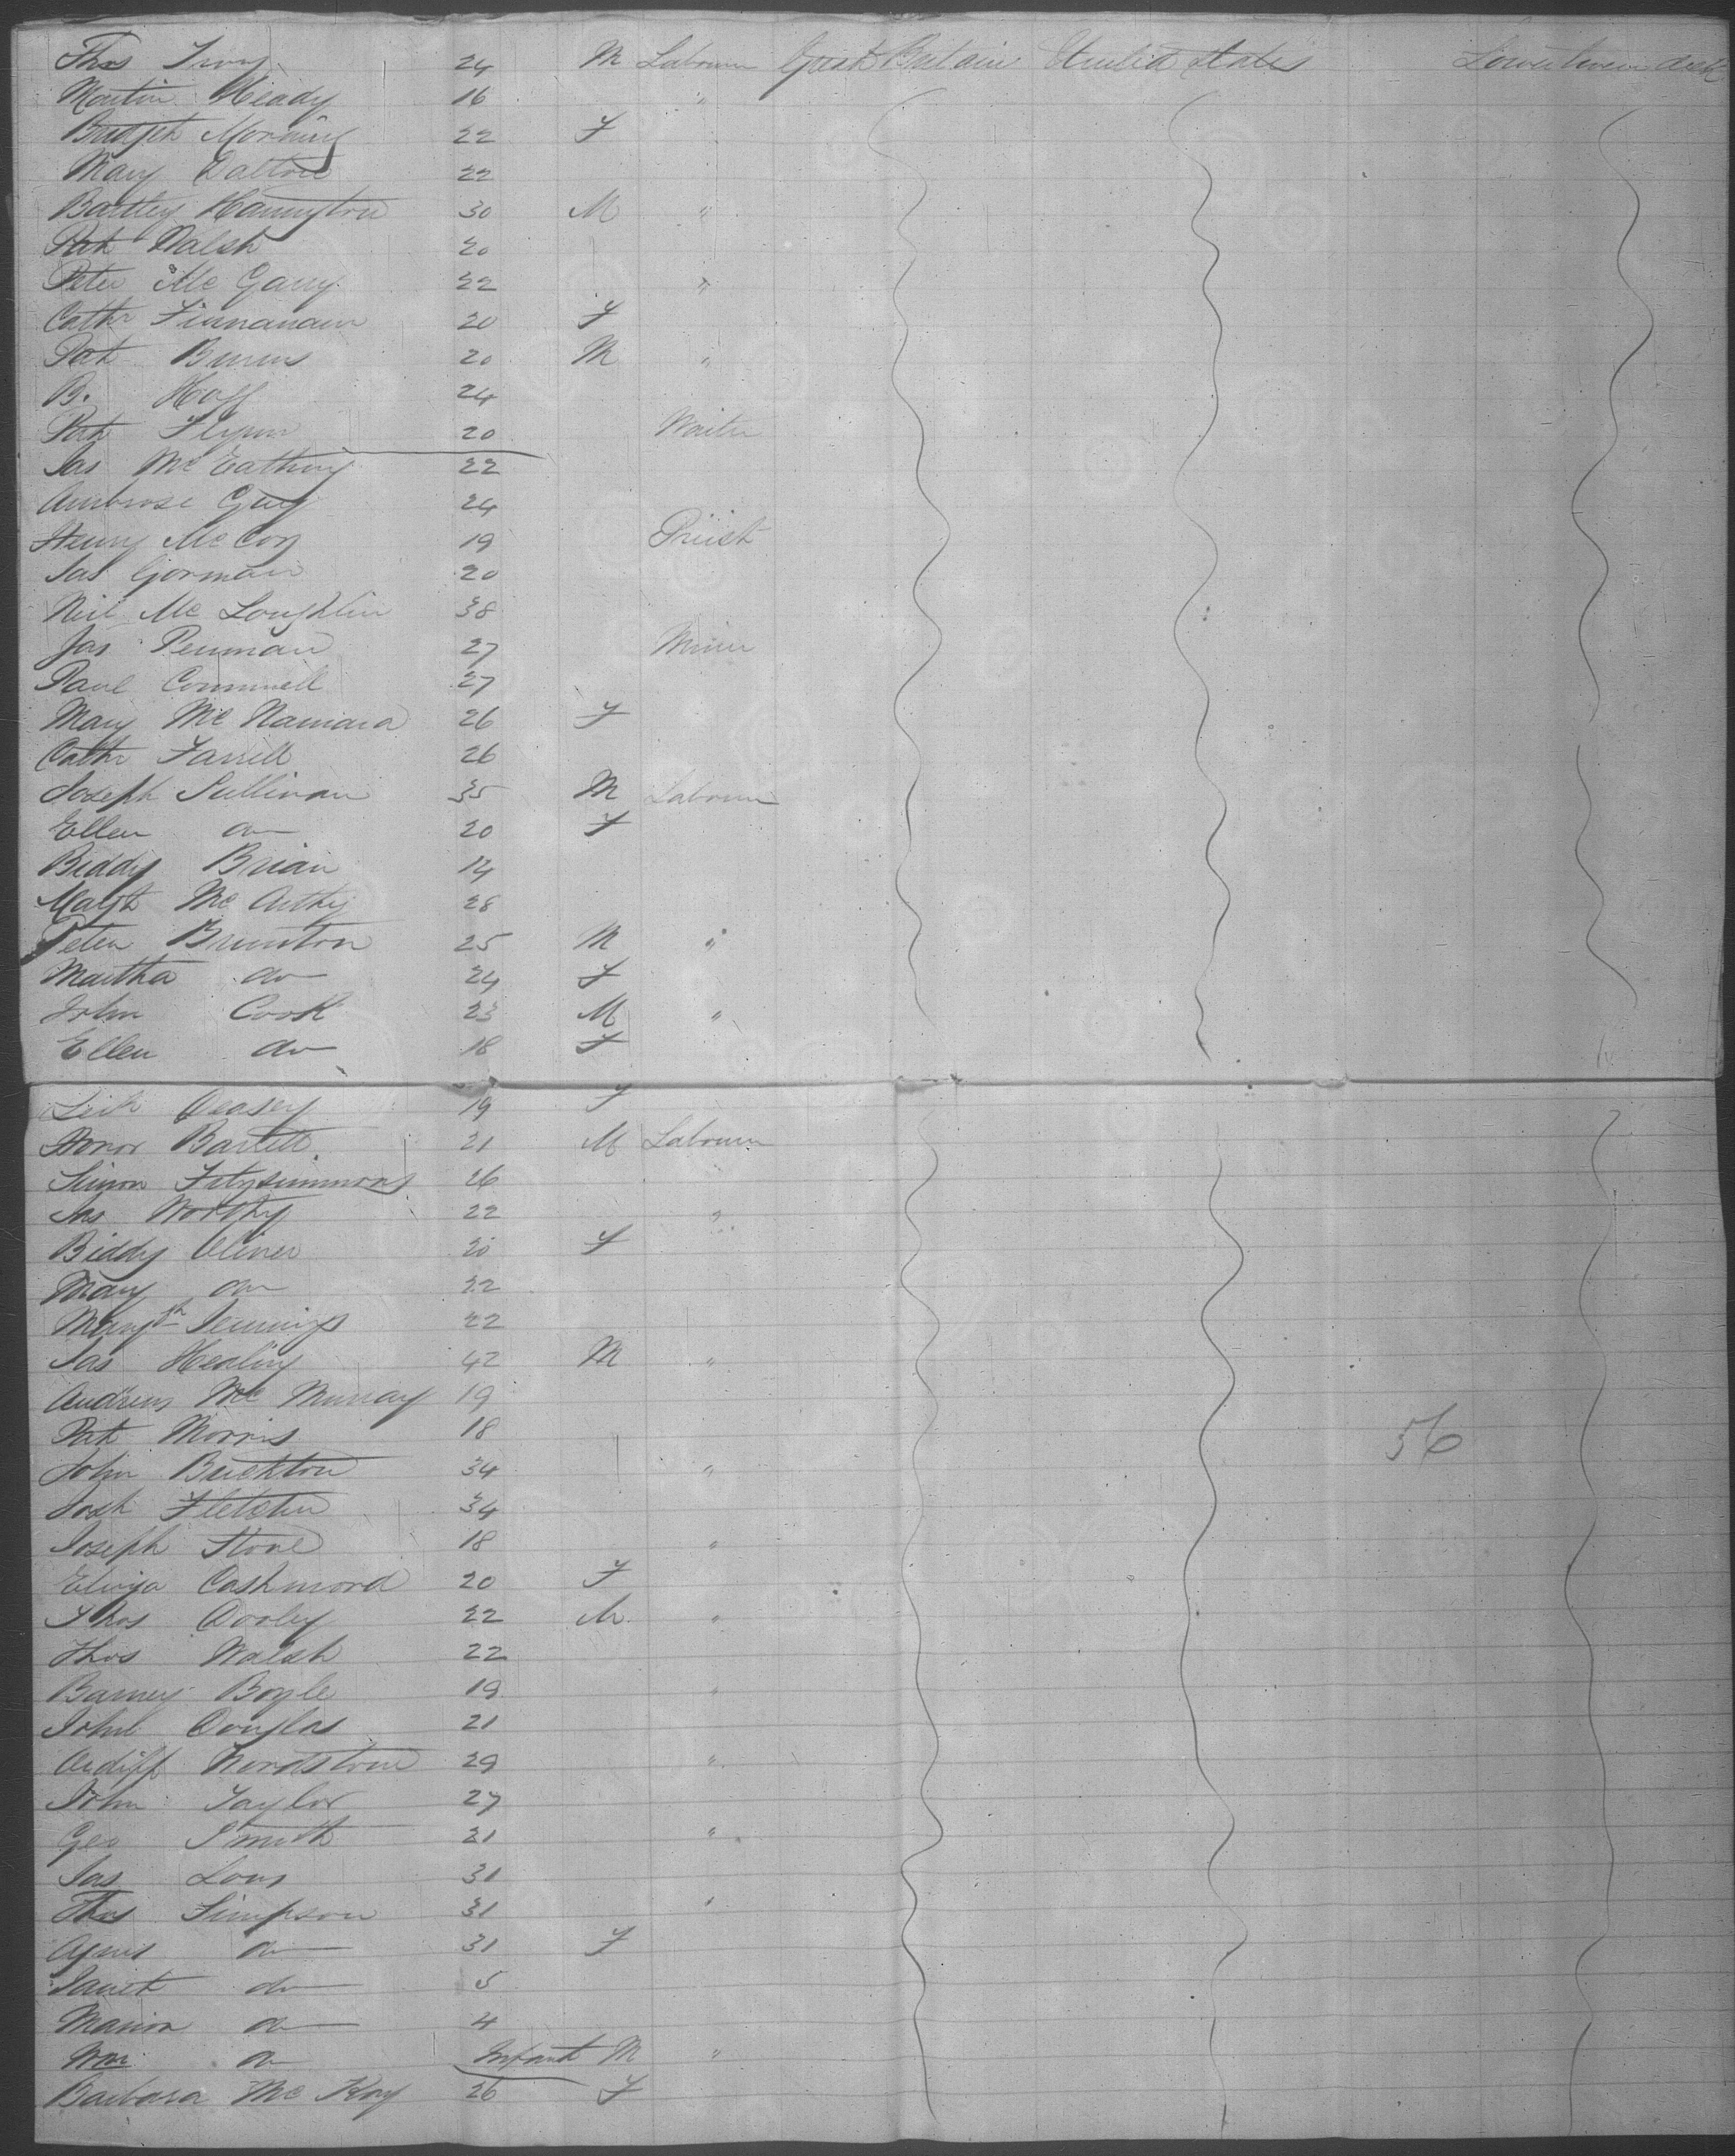 Thos Ivory 24 M Labourer Great Britain United States Lower tween deck
Martin Heady 16 "
Bridget Morning 22 F
Mary Dalton 22
Bartley Harrington 30 M "
Pat Walsh 20
Peter Mc Garry 22 "
Cathr Finnanan 20 F
Pat Burns 20 M "
B. 24
Pat Flynn 20 Waiter
Jas Mc Eathury 22
Ambrose Guy 24
Henry McCoy 19 Priest
Jas Gorman 20
Neil Mc Loughlin 38
Jas Penman 27 Miner
Paul Cornwell 27
Mary Mc Namara 26 F
Cathr Farrell 26
Joseph Sullivan 35 M Labourer
Ellen do 20 F
Biddy Brian 14
Margt Mc Arthy 28
Peter Brunton 25 M "
Martha do 24 F
John Cook 23 M "
Ellen do 18 F
Deasey 19 F
Honor Barrett 21 M Labourer
Simon Fitzsimmons 26
Jas Worthy 22 "
Biddy Oliver 20 F
Mary do 22
Margth Jennings 22
Jas Healing 42 M "
Andrew Mc Murray 19
Pat Morris 18 56
John Buckton 34 "
Josh Fletcher 34
Joseph Stone 18 "
Eliza Cashmord 20 F
Thos Dooley 22 M "
Thos Walsh 22
Barney Boyle 19 "
John Douglas 21
Nordstrom 29 "
John Taylor 27
Geo Smith 21 "
Jas Long 31
Thos Simpson 31 "
Agnes do 31 F
Janet do 5
Marion do 4
Wm do Infant M "
Barbara Mc Kay 26 F